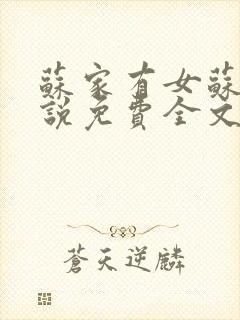 蘇家有女蘇
說免費全文
蒼天逆麟